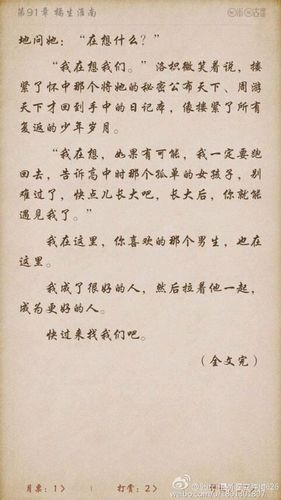 第91章 橘生淮南
地问她：“在想什么？”
“我在想我们。”洛枳微笑着说，搂
紧了怀中那个将她的秘密公布天下、周游
天下才回到手中的日记本，像搂紧了所有
复返的少年岁月。
“我在想，如果有可能，我一定要跑
回去，告诉高中时那个孤单的女孩子，别
难过了，快点儿长大吧，长大后，你就能
遇见我了。”
我在这里，你喜欢的那个男生，也在
这里。
我成了很好的人，然后拉着他一起，
成为更好的人。
快过来找我们吧。
（全文完）
月票：1>
打赏：2>